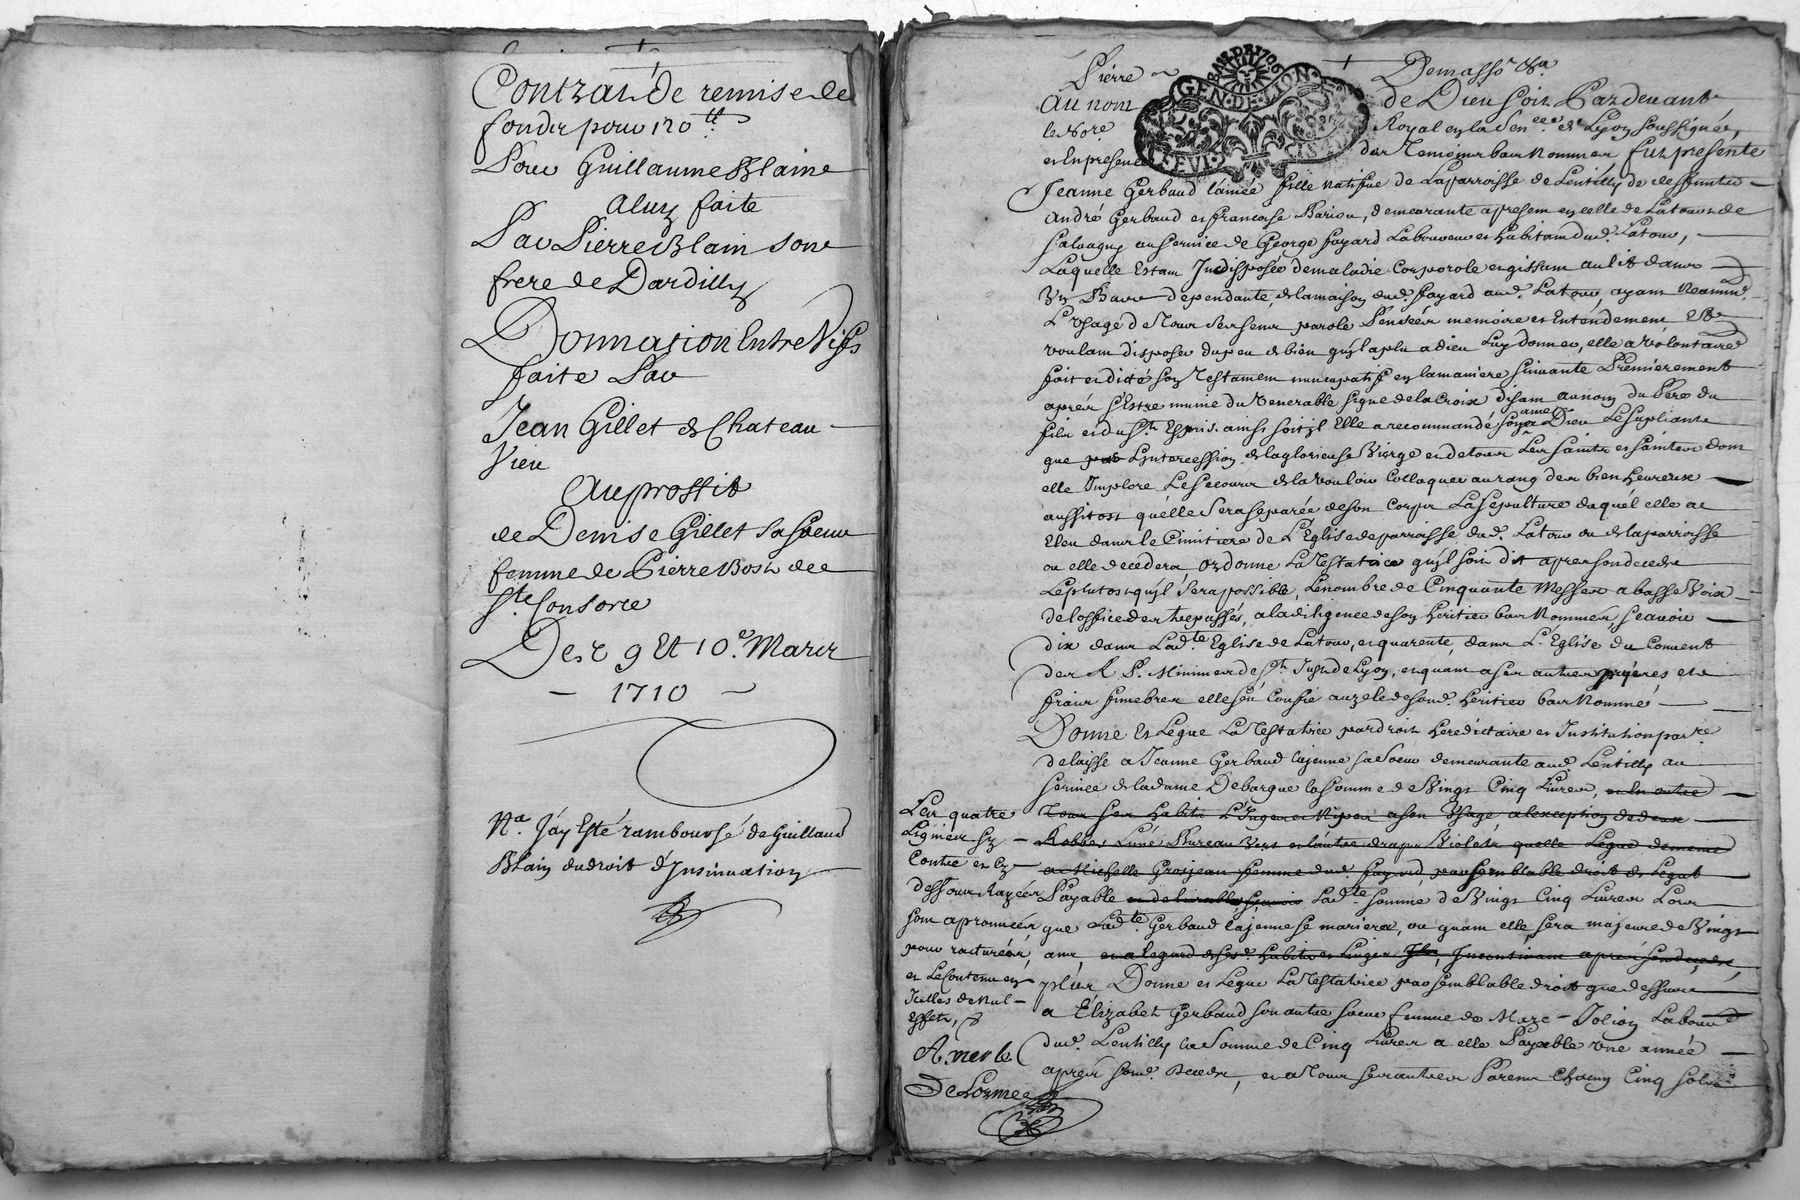 Contrat de remise de
fonds pour 120ᵗᵗ
Pour Guillaume Blain
a luy faite
Par Pierre Blain son
frere de Dardilly
Donnation Entre Vifs
faite Par
Jean Gillet de Chateau
Vieu
Au proffit
de Denise Gillet sa soeur
femme de Pierre Bost de
Ste Consorce
Des 9 Et 10e Mars
1710
Na. J'ay Esté rambourse de Guillaud
Blain du droit d'Insinuation
Pierre
Au nom de Dieu soit Pardevant
le Nore Royal en la Senee de Lyon soussigné,
et En presence des Temoins bas Nommes fut presente
GEN. DE. LION
Jeanne Gerbaud l'ainée fille natifue de La parroisse de Lentilly de deffuntes
André Gerbaud et francoise Bariou, demeurante a present en celle de La tour de
salvagny au service de George fayard Laboureur et habitant dud. La tour,
Laquelle Estant Indisposée de maladie Corporole et gissant au lit dans
Un dependante, de la maison dud. fayard aud. La tour, ayant Neanmd.
L'usage de Tous ses sens parole Pensées memoire et Entendement Et
voulant disposer du peu de bien qu'il a plu a dieu Luy donner, elle a volontaired
fait et dicté son Testament nuncupatif en la maniere suivante Premierement
aprés s'Estre munie du Venerable signe de la Croix disant au nom du Pere du
fils et du St. Esprit ainsi soit il Elle a recommandé son ame a Dieu Le supliant
que par L'Intercession de la glorieuse Vierge et de tous Les saints et saintes dont
elle Implore Le secours de la vouloir Colloquer au rang des bien heureux
aussitost quelle sera separée de son Corps La sepulture duquél elle a
Eleu dans le Cimitiere de L'Eglise de parroisse dud. La tour ou de la parroisse
ou elle decedera, ordonne La Testatrice qu'il soit dit apres son deceds
Le plutost qu'il sera possible, Le nombre de Cinquante Messes a basse Voix
de l'office des trepassés, a la diligence de son heritier bas Nommés, scavoir
dix dans Ladte. Eglise de La tour, et quarente, dans L'Eglise du Couvent
des R. P. Minimes de St. Just de Lyon, et quant a ses autres priéres et
frais funebres elle s'en Confie au zele de sond. heritier bas Nommé
Donne et Legue La Testatrice par droit hereditaire et Institution parre.
delaisse a Jeanne Gerbaud lajeune sa soeur demeurante aud. Lentilly au
service de la dame Debargue la somme de Vingt Cinq Livres, et En outre
Tous ses habits L'Inges et Nipes a son Usage, a l'exception de deux
Robbes L'une Bureau Vers et l'autre drap Violet, quelle Legue de meme
a Michelle Grosjean femme dud. fayard, par semblable droit de Legat
Payable et delivrables scavoir Ladte. somme de Vingt Cinq Livres Lors
que Ladte. Gerbaud lajeune se mariera, ou quant elle sera majeure de Vingt
ans, et a legard desd. habits et Linges Incontinant aprés son deceds,
plus Donne et Legue La Testatrice par semblable droit que dessus
a Elizabet Gerbaud son autre soeur femme de Marc Jolion Laboured
dud. Lentilly la Somme de Cinq Livres a elle Payable une année
aprés sond. Deceds, et a Tous ses autres Parens Chacun Cinq sols
Les quatre
Lignes Sy
Contre et Cy
dessous Razées
sont aprouvées
pour raturées,
et Le Contenu en
Icelles de Nul
Effet,
A. merle
De Lorme